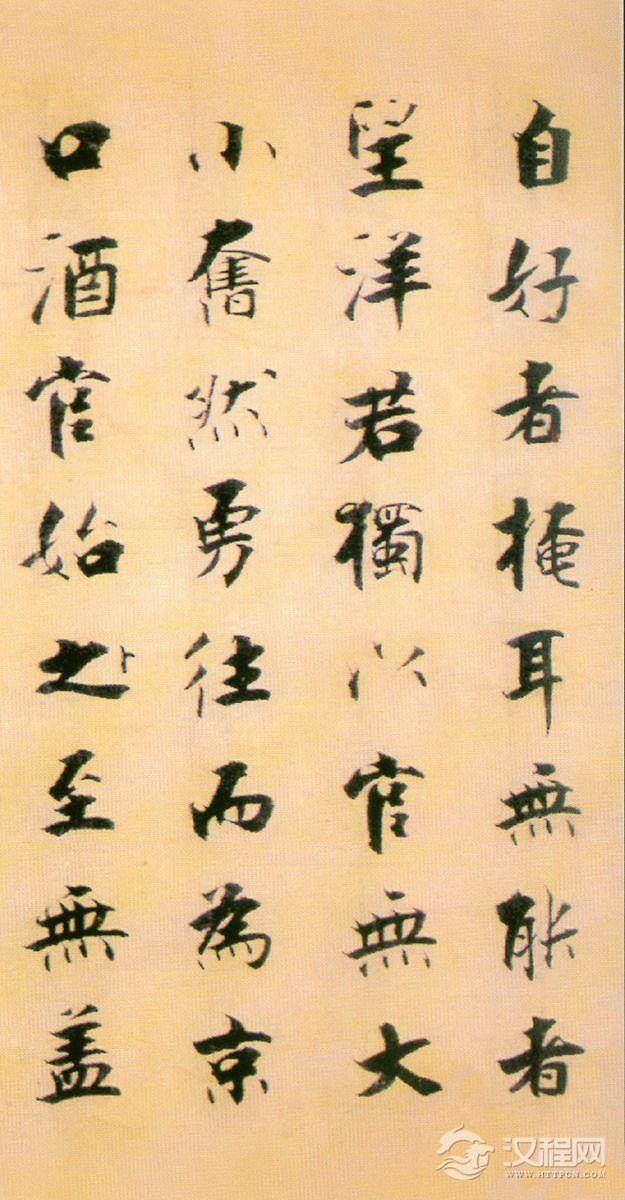 自好者掩耳無能者
望洋若獨以官無大
小奮然勇往而為京
口酒官始之至無盖
汉程网
WWW.HTTPCN.COM